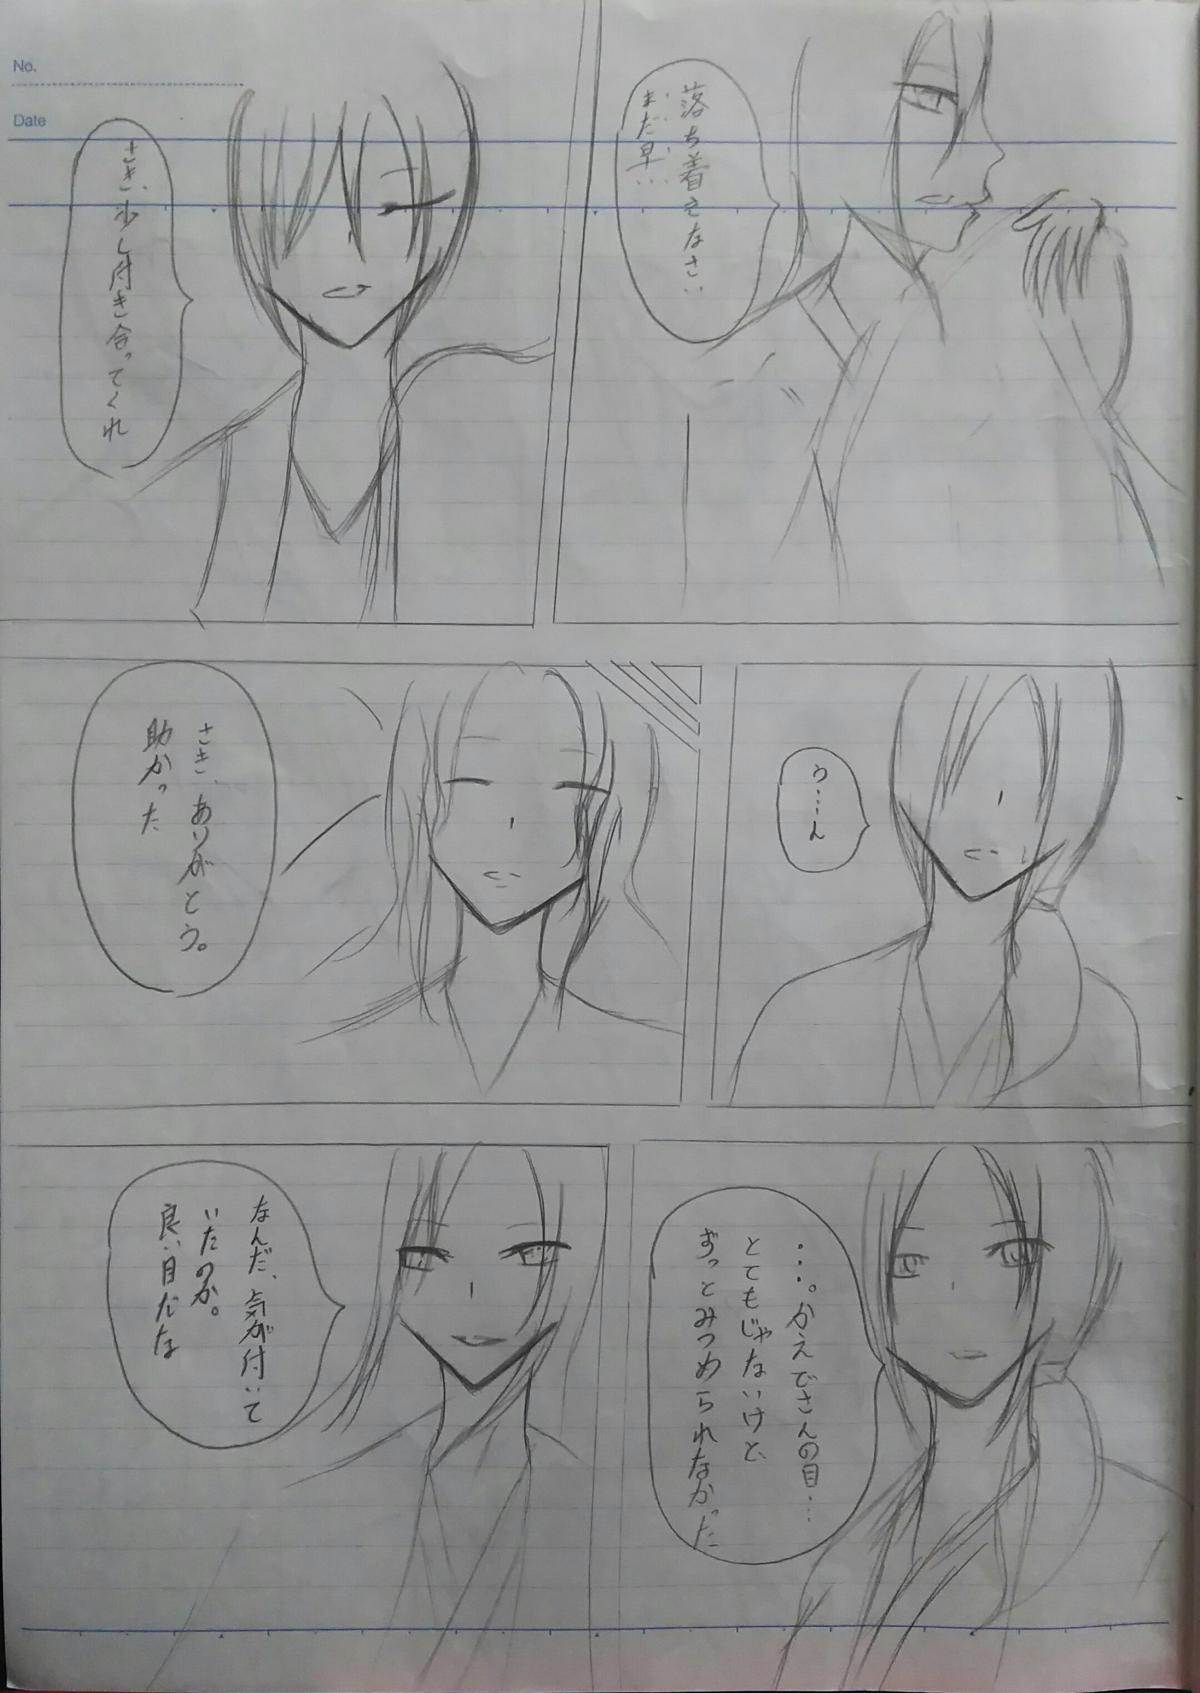 No.
Date
落ち着えなさい
まだ早…
さき、少し付き合ってくれ
う…ん
さき、ありがとう。
助かった
…。かえでさんの目…
とてもじゃないけど、
ずっとみつめられなかった
なんだ、気が付いて
いたのか。
良い目だな